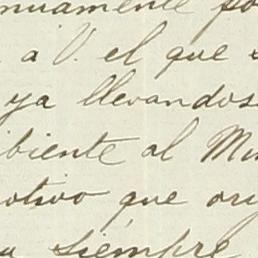 nuamente po
a V. el que
ya llevandos
ibiente al Min
otivo que ori
a siempre